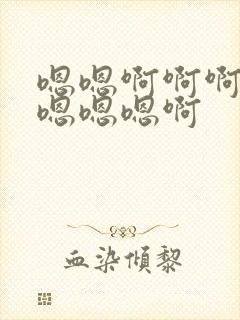 嗯嗯啊啊啊
嗯嗯嗯啊
血染倾黎